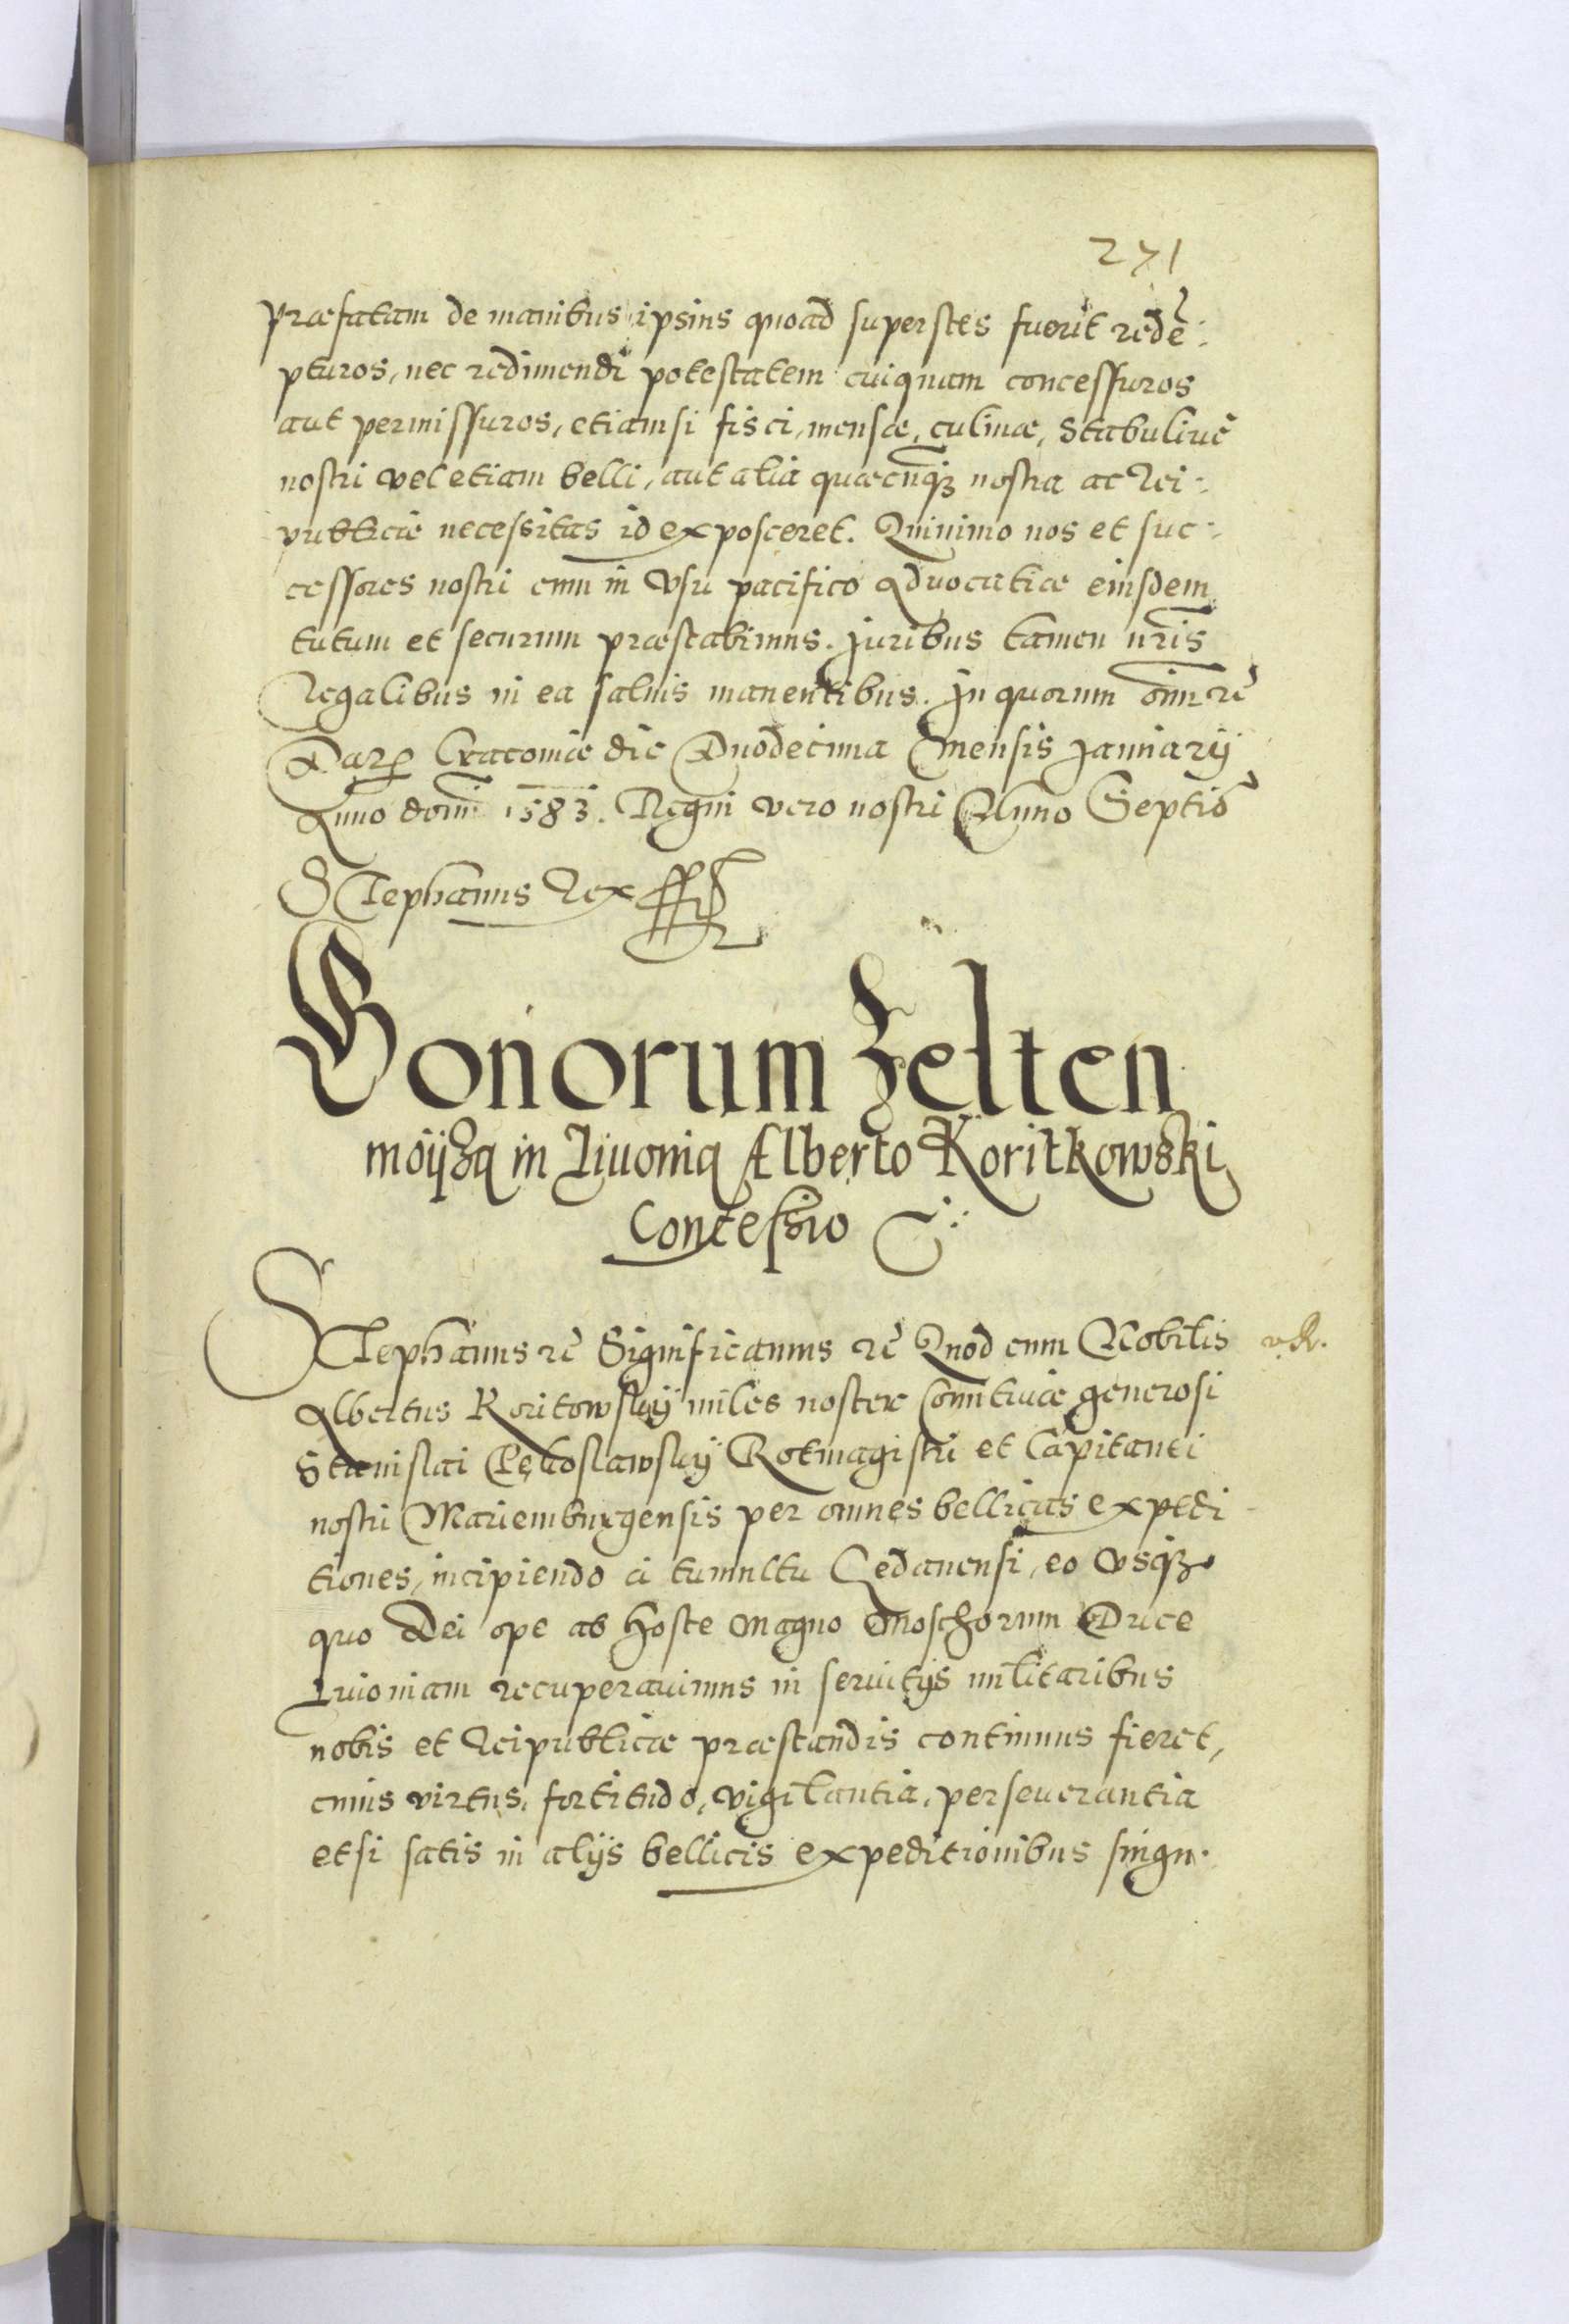 271
præfatam de manibus ipsius quoad superstes fuerit redē:
pturos, nec redimendi potestatem cuiquam concessuros
aut permissuros, etiamsi fisci, mensæ, culinæ, Stabulive
nostri vel etiam belli, aut alia quæcūqȝ nostra ac Rei:
publicæ necessitas id exposceret. Quinimo nos et suc:
cessores nostri eum in Vsu pacifico Aduocatiæ eiusdem
tutum et securum præstabimus. Juribus tamen nr̄is
Regalibus in ea saluis manentibus. In quorum om̄ rē
Dat Cracouiæ die Duodecima Mensis Januarij
Anno domī 1583. Regni vero nostri Anno Septiō
Stephanus Rex
Bonorum Zelten
moÿza in Liuonia Alberto Koritkowski
Concessio
Stephanus rē Significamus rē Quod cum Nobilis
v.R.
Albertus Koritowskij miles noster Comitiuæ generosi
Stanislai Pękoslawskij Rotmagistri et Capitanei
nostri Mariemburgensis per omnes bellicas expedi
tiones, incipiendo a tumultu Gedanensi, eo Vsqȝ
quo Dei ope ab Hoste Magno Moschorum Duce
Liuoniam recuperauimus in seruitijs militaribus
nobis et Reipublicæ præstandis continuus fieret,
cuius virtus, fortitudo, vigilantia, perseuerantia
etsi satis in alijs bellicis expeditionibus singu.